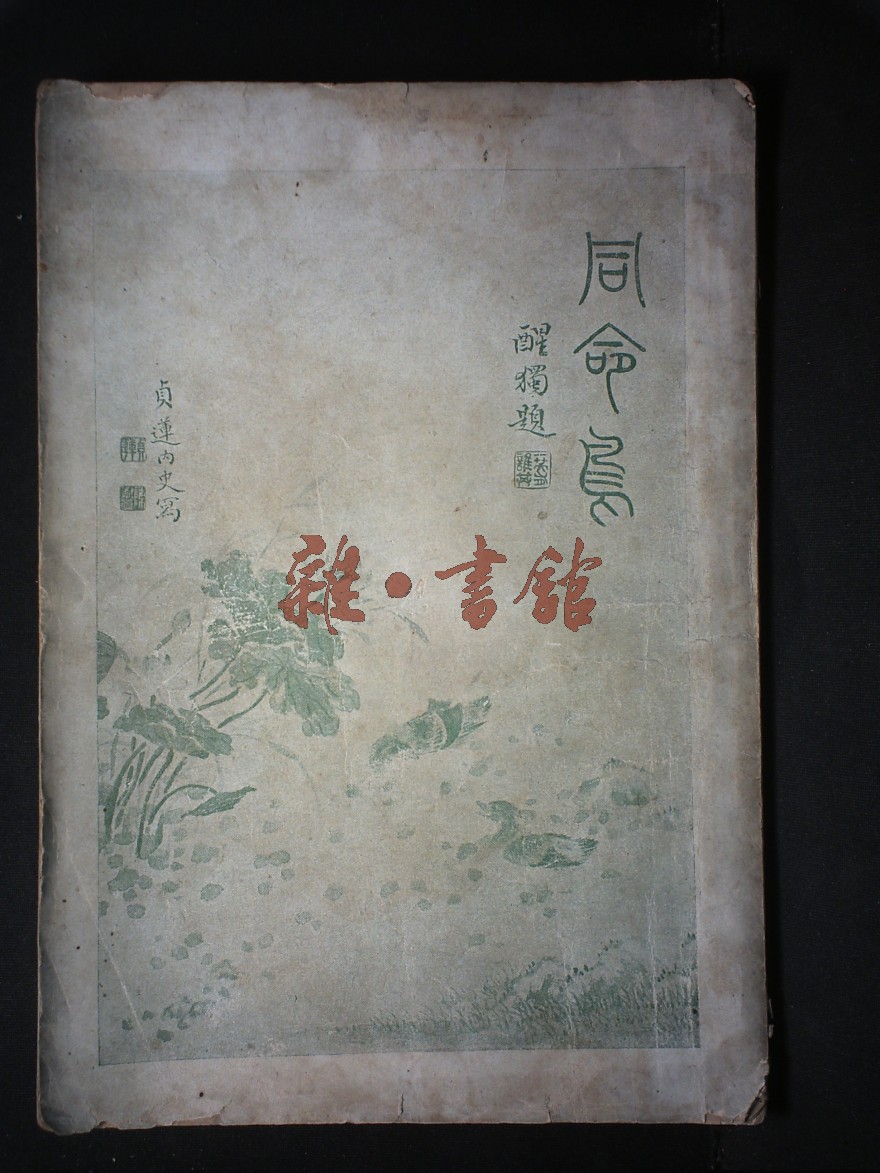 同命鳥
醒獨題
貞蓮内史寫
雜·書館